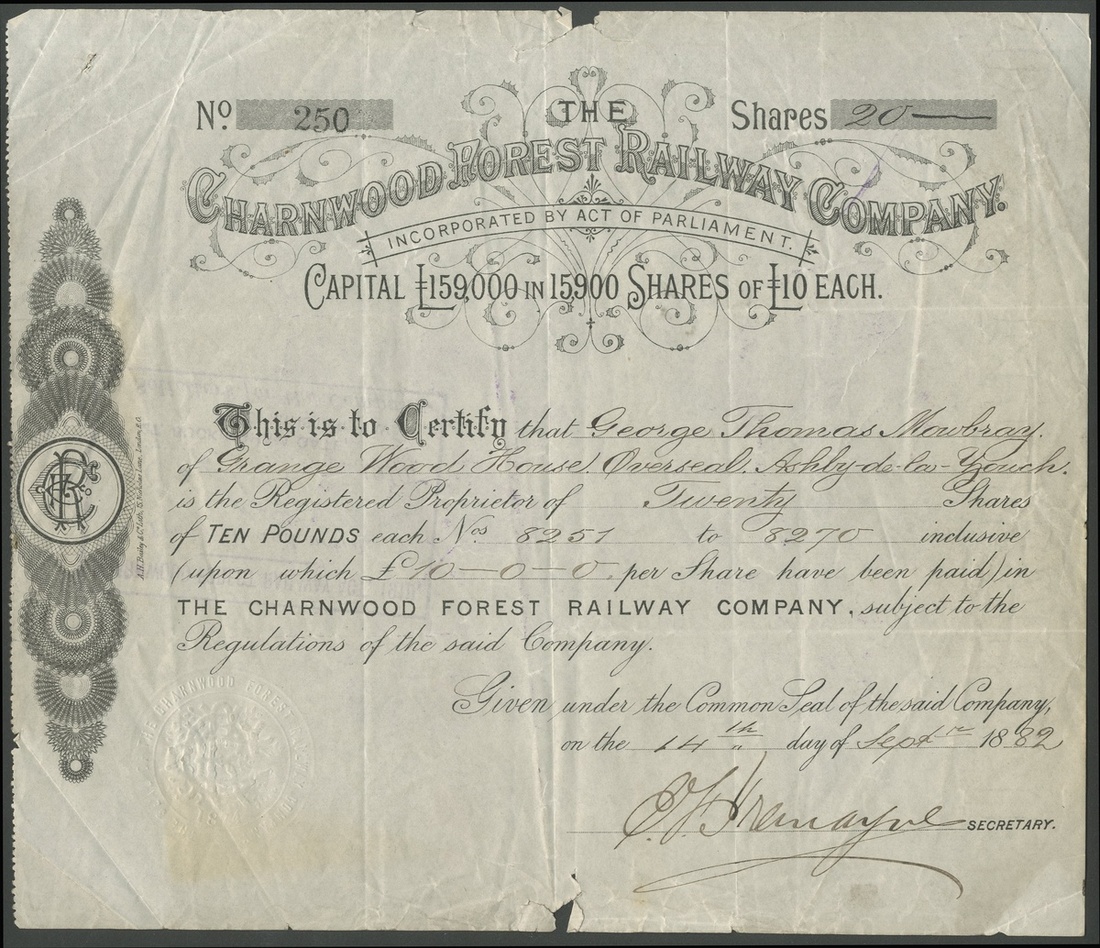 No. 250 THE Shares 20
CHARNWOOD FOREST RAILWAY COMPANY.
INCORPORATED BY ACT OF PARLIAMENT.
CAPITAL £159,000 IN 15,900 SHARES OF £10 EACH.
This is to Certify that George Thomas Mowbray.
of Grange Wood House. Overseal. Ashby-de-la-Zouch.
is the Registered Proprietor of Twenty Shares
of TEN POUNDS each Nos 8251 to 8270 inclusive
(upon which £10-0-0. per Share have been paid) in
THE CHARNWOOD FOREST RAILWAY COMPANY, subject to the
Regulations of the said Company.
Given under the Common Seal of the said Company,
on the 14th day of Septr 1882
SECRETARY.
THE CHARNWOOD FOREST
London, E.C.